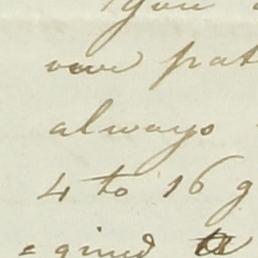 you
pat
always
4 to 16 g
=gined